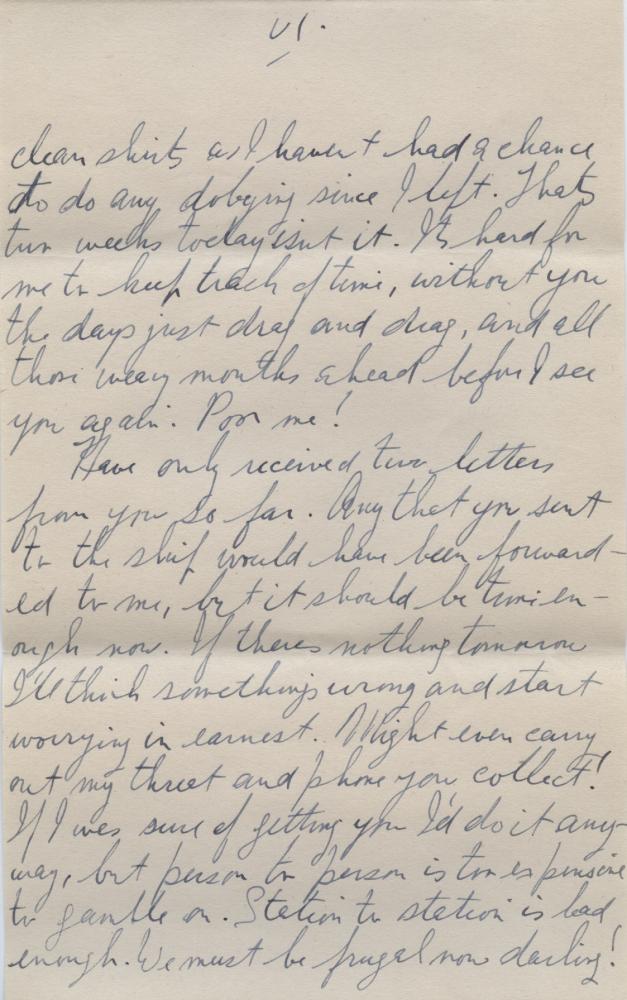 VI.
clean shirts as I haven't had a chance
to do any dobying since I left. Thats
two weeks today isnt it. Its hard for
me to keep track of time, without you
the days just drag and drag, and all
those weary months ahead before I see
you again. Poor me!
Have only received two letters
from you so far. Any that you sent
to the ship would have been forward-
ed to me, but it should be time en-
ough now. If theres nothing tomorrow
I'll think somethings wrong and start
worrying in earnest. Might even carry
out my threet and phone you collect!
If I was sure of getting you I'd do it any-
way, but person to person is too expensive
to gamble on. Station to station is bad
enough. We must be frugal now darling!